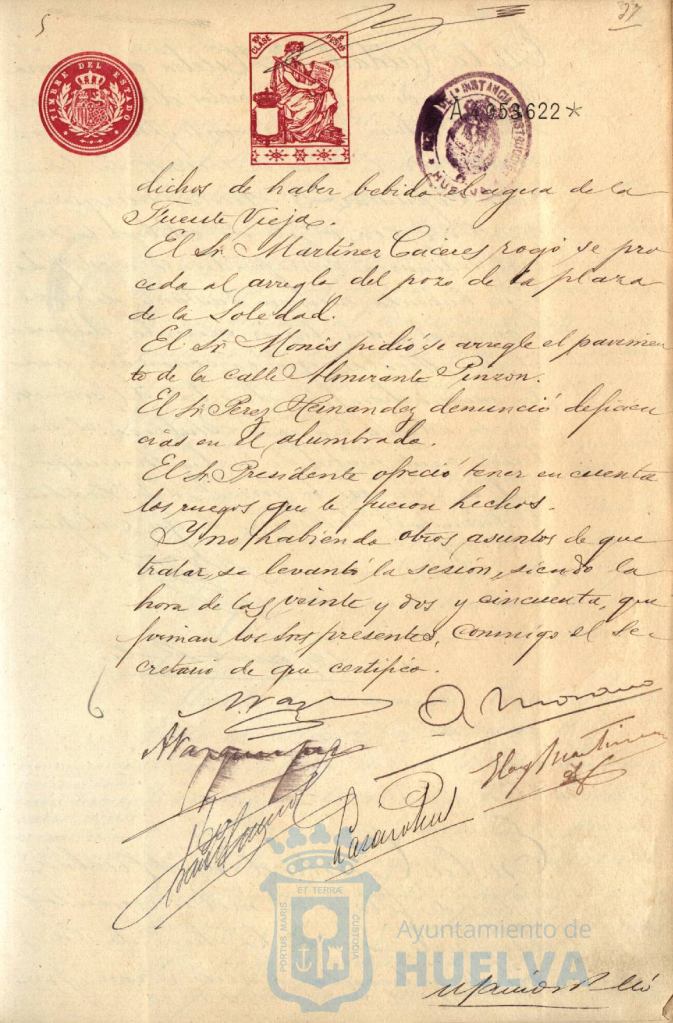 5
37
TIMBRE DEL ESTADO
10ª CLASE
A 053,622*
INSTANCIA
HUELVA
dichos de haber bebido el agua de la
Fuente Vieja.
El Sr. Martinez Caceres rogó se pro
ceda al arreglo del pozo de la plaza
de la Soledad.
El Sr. Monis pidió se arregle el pavimen
to de la calle Almirante Pinzon.
El Sr. Perez Hernandez denunció deficien
cias en el alumbrado.
El Sr. Presidente ofreció tener en cuenta
los ruegos que le fueron hechos.
Y no habiendo otros asuntos de que
tratar, se levantó la sesión, siendo la
hora de las veinte y dos y cincuenta, que
firman los Sres presentes, conmigo el Se-
cretario de que certifico.
Moreno
Eloy Martinez
PORTUS MARIS
ET TERRÆ
CUSTODIA
Ayuntamiento de
HUELVA